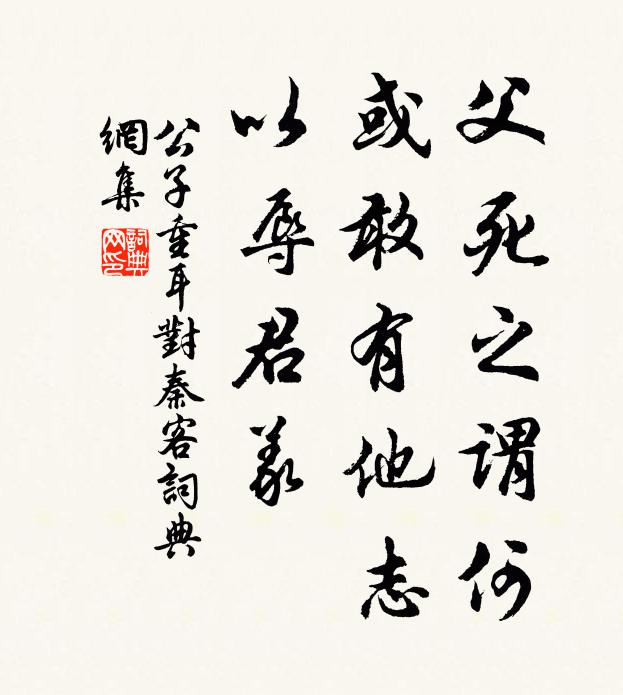 父死之謂何
或敢有他志
以辱君義
公子重耳對秦客詞典
網集
詞典
网印